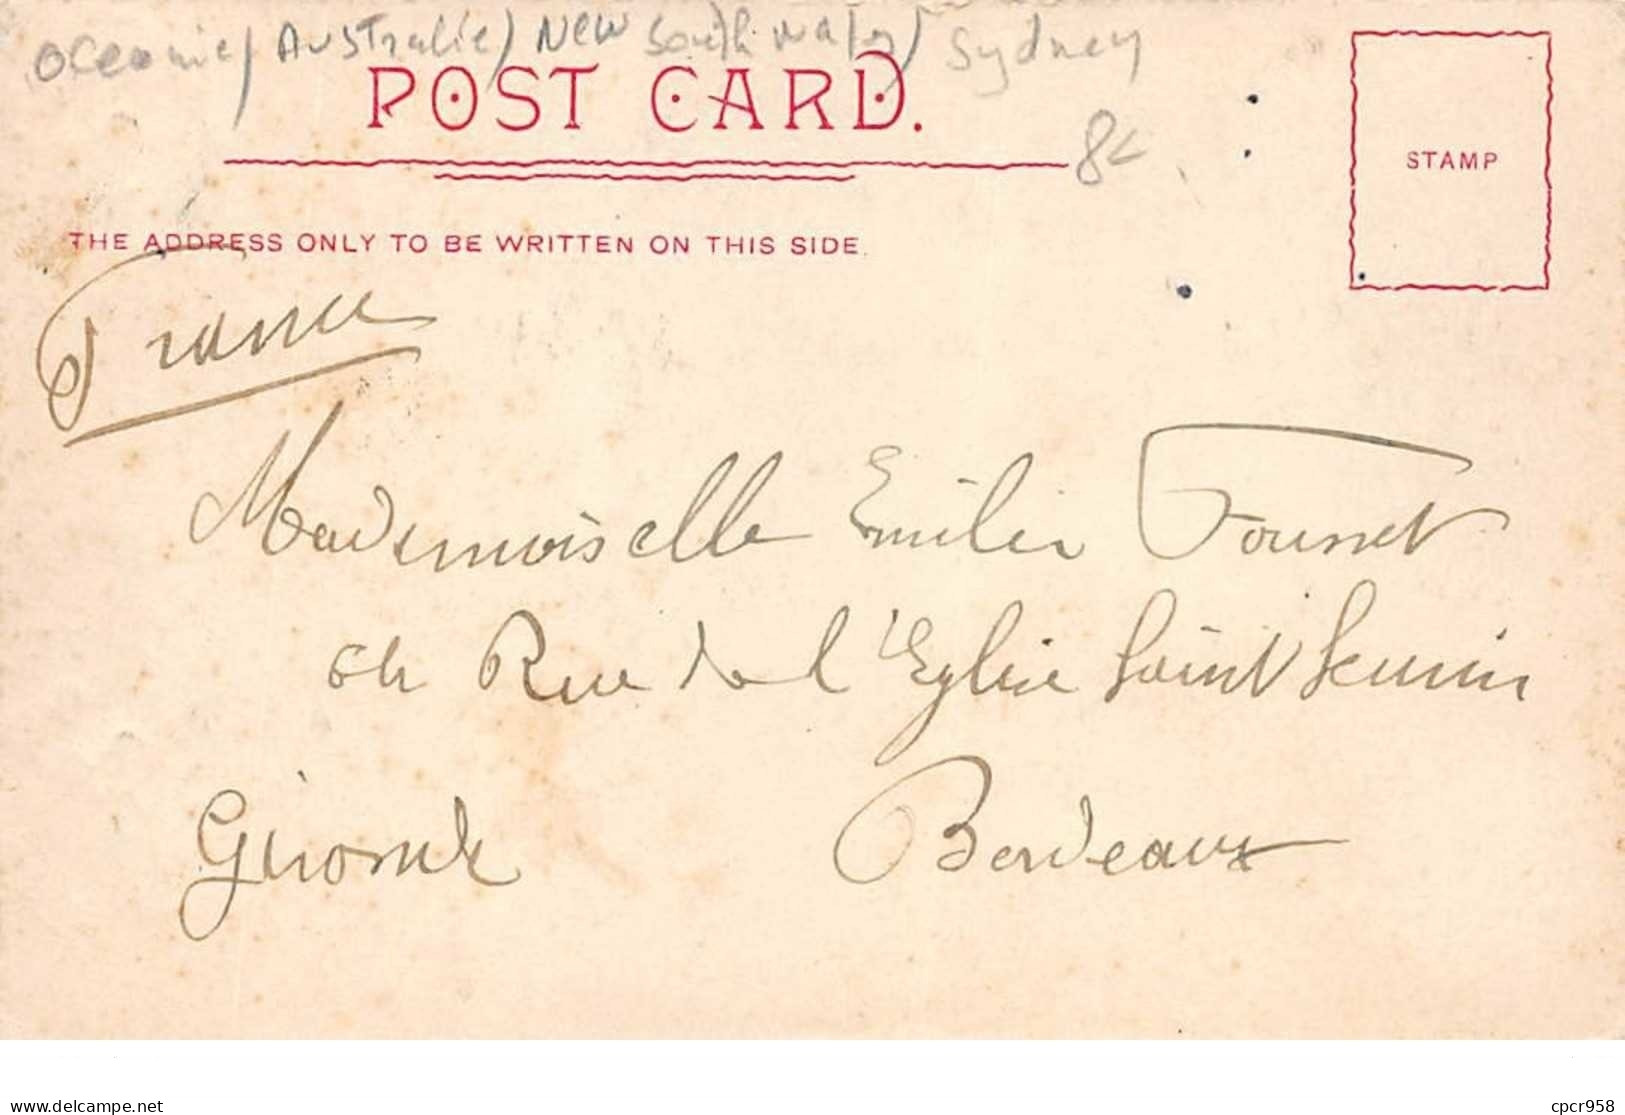 Oceanie / Australie / New South Wales / Sydney
POST CARD.
8€
STAMP
THE ADDRESS ONLY TO BE WRITTEN ON THIS SIDE.
France
Mademoiselle Emilie
Rue de l'Eglise Saint Seurin
Gironde Bordeaux
delcampe.net
cpcr958